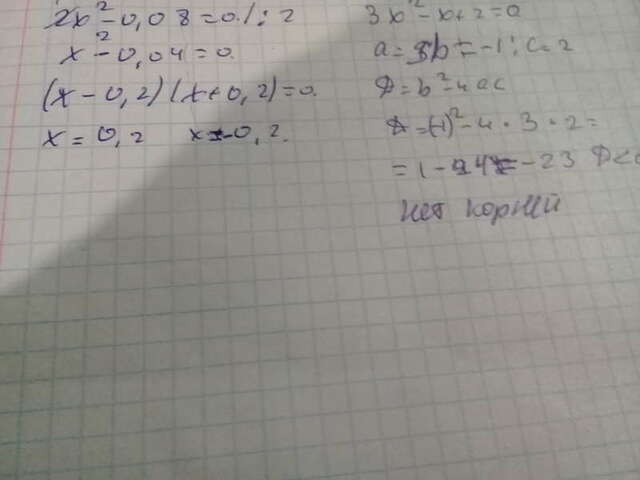 2x²-0,08=0 /:2
x²-0,04=0
(x-0,2)(x+0,2)=0.
x=0,2 x=-0,2.
3x²-x+2=0
a=3 b=-1; c=2
D=b²-4ac
D=(-1)²-4·3·2=
=1-24=-23 D<0
нет корней